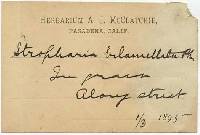 HERBARIUM A. J. MCCLATCHIE,
PASADENA, CALIF.
Stropharia bilamellata Pk.
In grass
Along street
1/3 1895